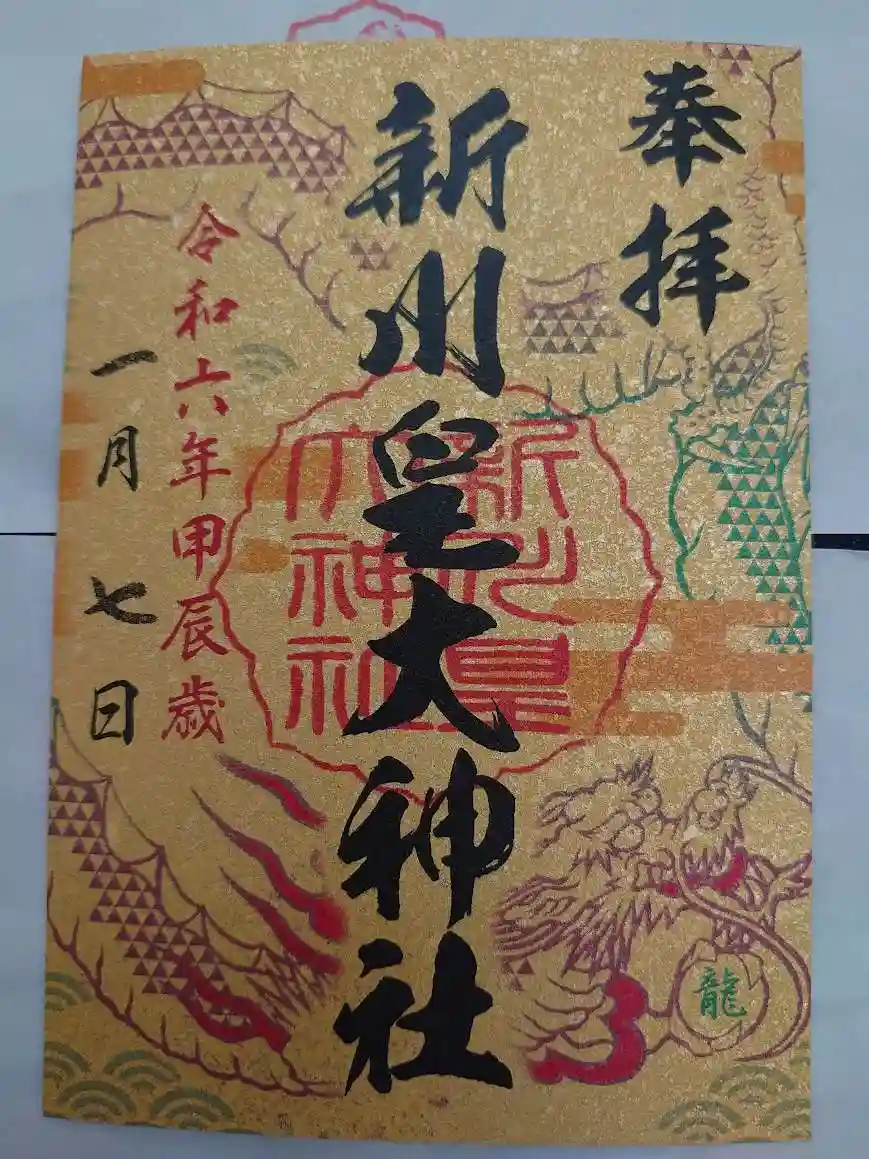 奉拝
新川皇大神社
新川皇大神社
令和六年甲辰歳
一月七日
龍